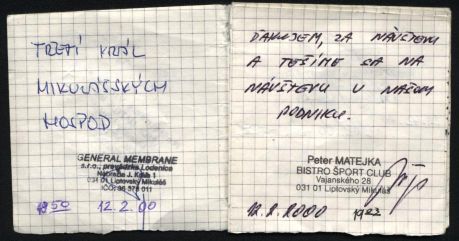 TŘETÍ KRÁL
MIKULÁŠSKÝCH
HOSPOD
GENERAL MEMBRANE
s.r.o., prevádzka Lodenica
031 01 Liptovský Mikuláš
12. 2. 00
ĎAKUJEM, ZA NÁVŠTEVU
A TEŠÍME SA NA
NÁVŠTEVU V NAŠOM
PODNIKU.
Peter MATEJKA
BISTRO ŠPORT CLUB
Vajanského 28
031 01 Liptovský Mikuláš
12. 2. 2000